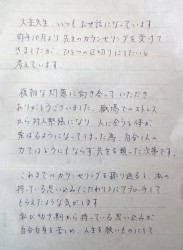 大室先生、いつもお世話になっています。
昨年10月より先生のカウンセリングを受けて
きましたが、ひとつの区切りにしたいと
考えています。
複雑な問題に向き合っていただき
ありがとうございました。職場でのストレス
から対人緊張になり、人に会うと体が
震えるようになってしまった為、自分1人の
力ではどうにもならず先生を頼った次第です。
これまでのカウンセリングを振り返ると、私の
持っている思い込みこだわりにアプローチして
もらえたような気がします。
私が幼少期から持っている思い込みが
自分自身を苦しめ、人生を狭いものにして